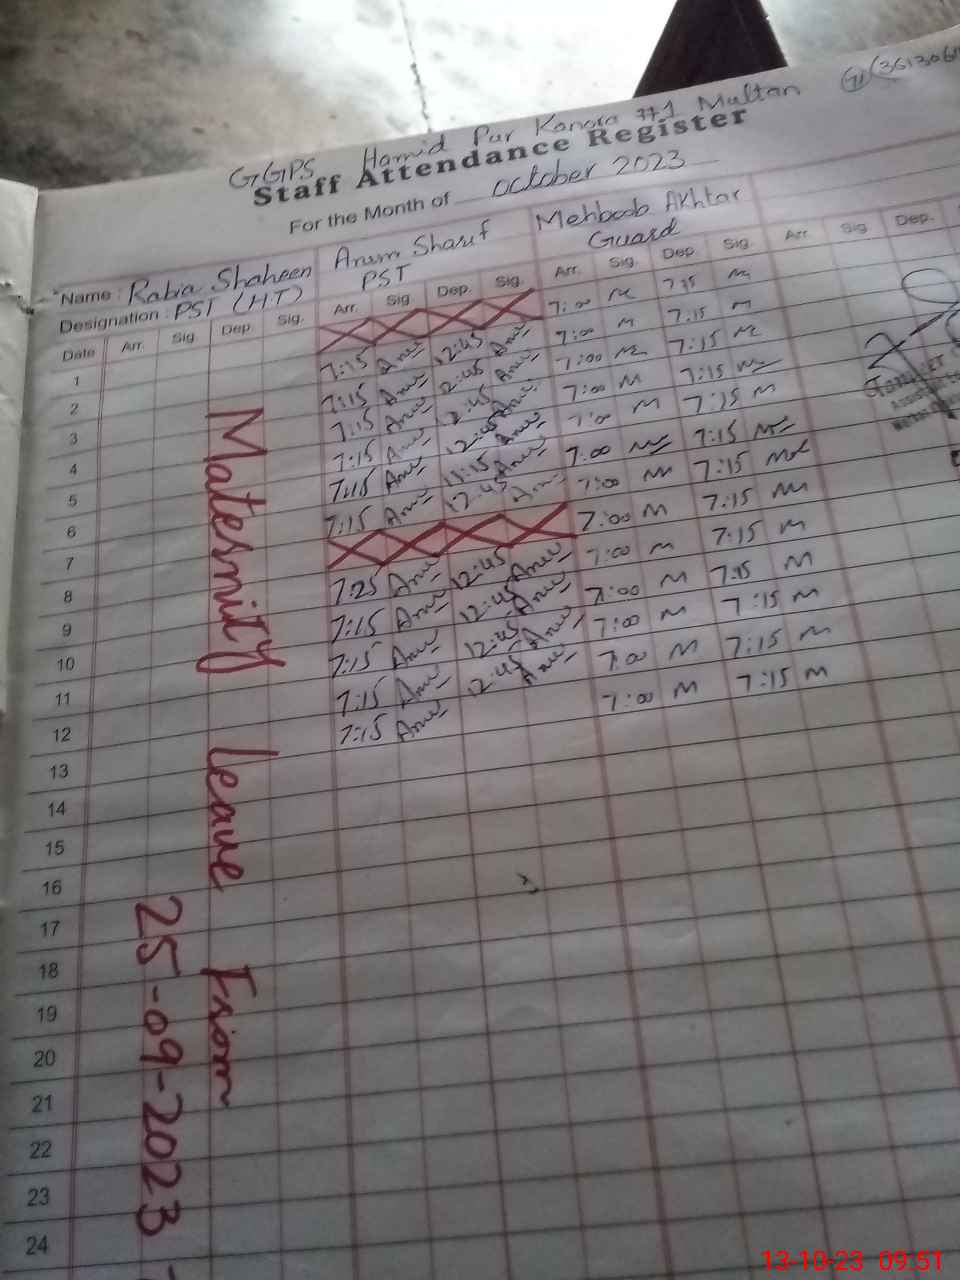 GGPS Hamid Pur Kanora #1 Multan
Staff Attendance Register
For the Month of October 2023
Name: Rabia Shaheen Anum Sharif Mehboob Akhtar
Designation: PST (H.T) PST Guard
Date Arr. Sig Dep. Sig. Arr. Sig Dep. Sig. Arr. Sig. Dep. Sig. Arr. Sig Dep.
1 7:00 M 7:15 M
2 7:15 Anum 12:45 Anum 7:00 M 7:15 M
3 7:15 Anum 12:45 Anum 7:00 M 7:15 M
4 7:15 Anum 12:45 Anum 7:00 M 7:15 M
5 7:15 Anum 12:45 Anum 7:00 M 7:15 M
6 7:15 Anum 11:15 Anum 7:00 M 7:15 M
7 7:15 Anum 12:45 Anum 7:00 M 7:15 M
8 7:00 M 7:15 M
9 7:25 Anum 12:45 Anum 7:00 M 7:15 M
10 7:15 Anum 12:45 Anum 7:00 M 7:15 M
11 7:15 Anum 12:45 Anum 7:00 M 7:15 M
12 7:15 Anum 12:45 Anum 7:00 M 7:15 M
13 7:15 Anum 7:00 M 7:15 M
14
15
16
17
18
19
20
21
22
23
24
Maternity leave From
25-09-2023
13-10-23 09:51